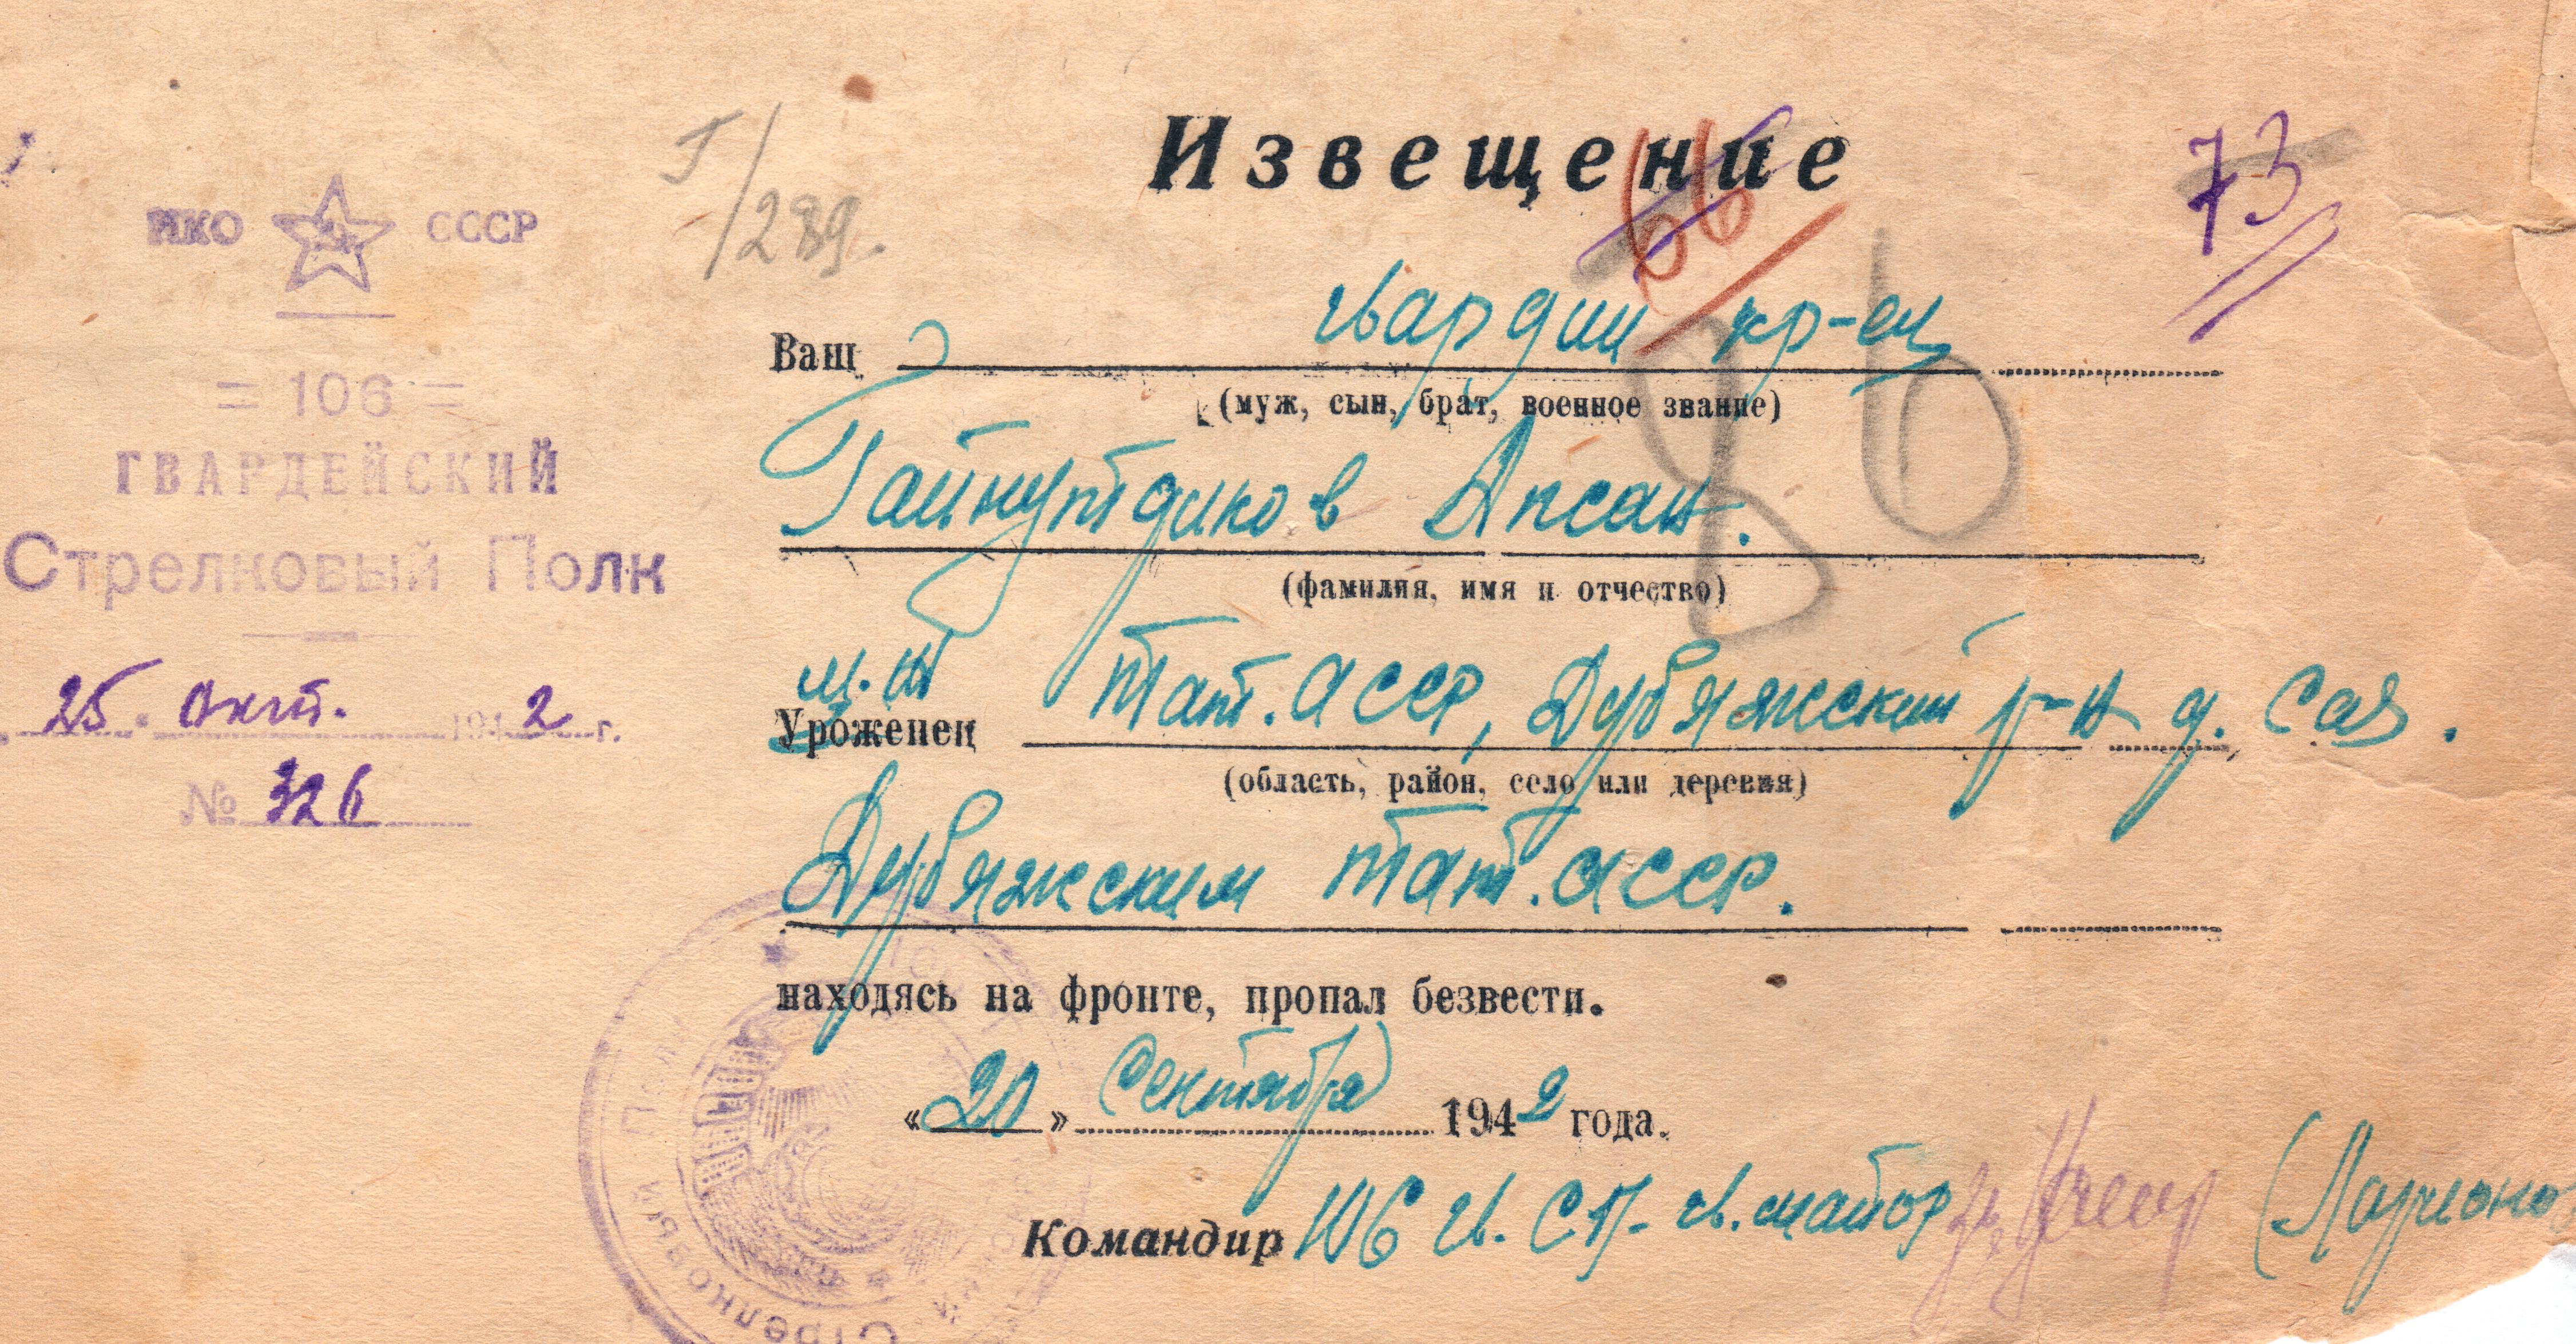 НКО СССР
= 106 =
ГВАРДЕЙСКИЙ
Стрелковый Полк
25. окт. 1942 г.
№ 326
Г/289.
Извещение
66
73
86
Ваш гвардии кр-ец
(муж, сын, брат, военное звание)
Гайнутдинов Апсан.
(фамилия, имя и отчество)
м.ж
Уроженец Тат. АССР, Дубяжский р-н д. Сая.
(область, район, село или деревня)
Дубяжским Тат. АССР.
находясь на фронте, пропал безвести.
«20» сентября 1942 года.
Командир 106 гв. СП. гв. майор (Ларионо
Стрелковый Полк